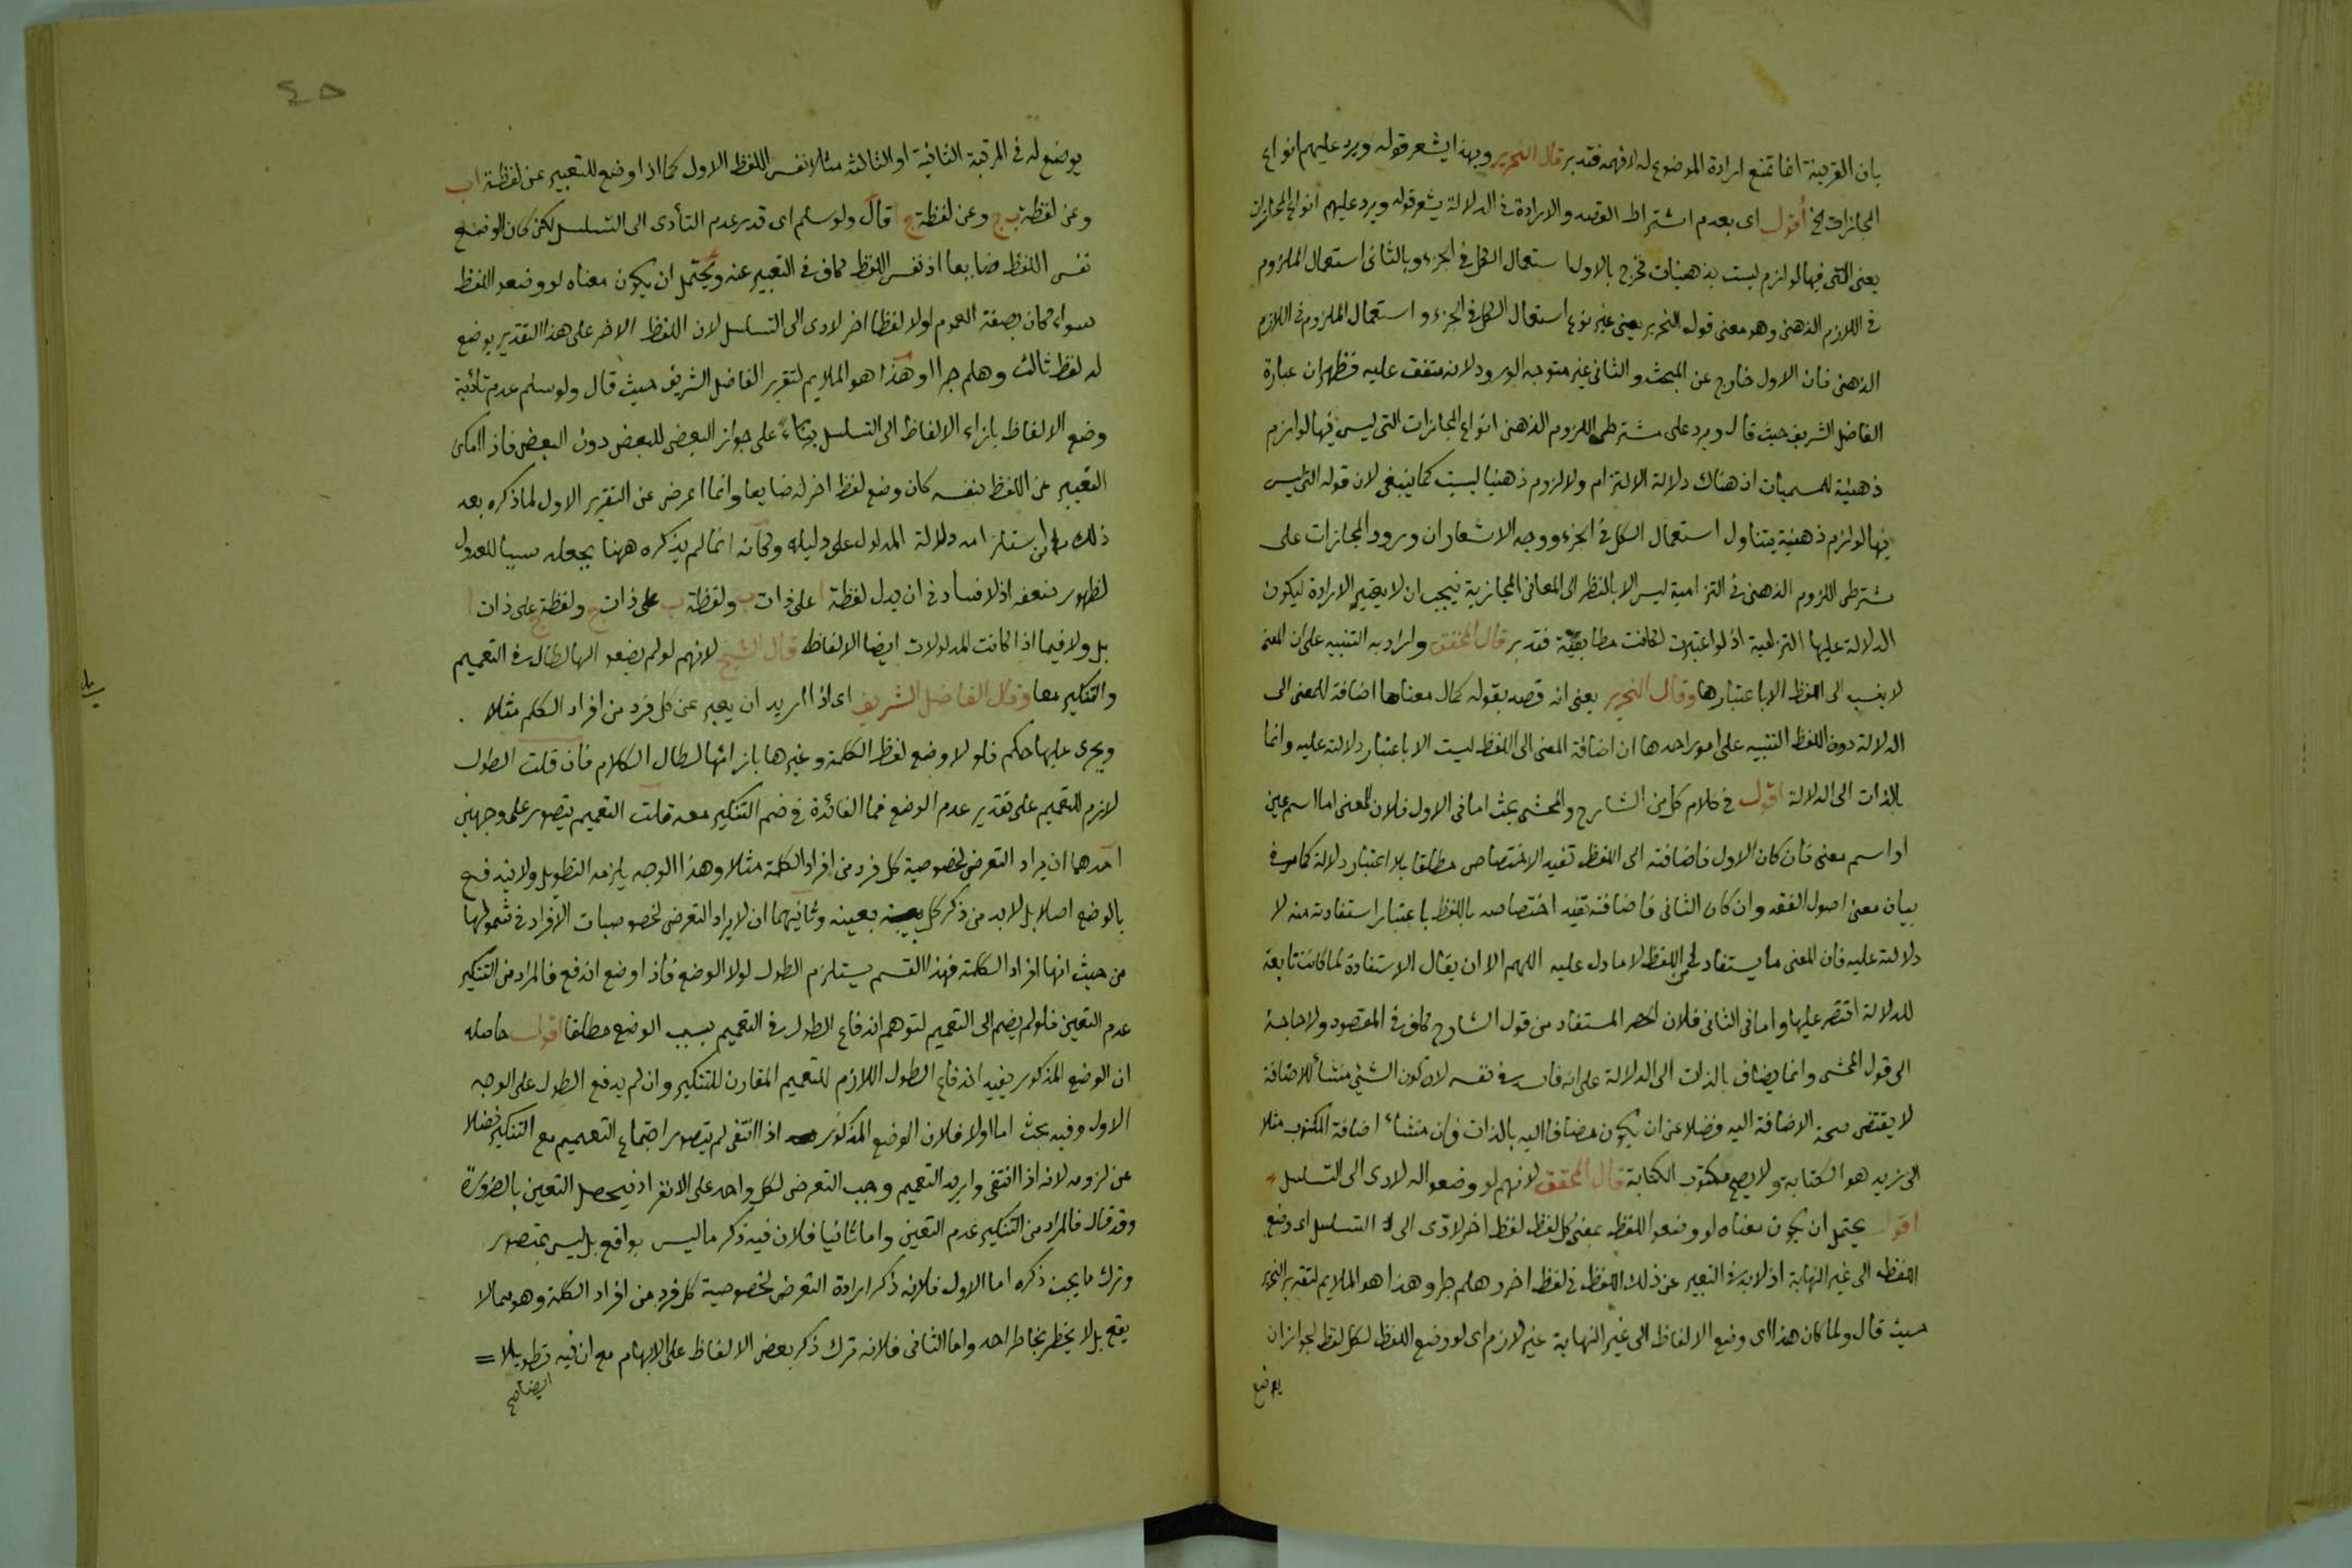 بان القرينة انما تمنع ارادة الموضوع له لا فهمه فتدبر قال النحرير وبهذا يشعر قوله ويرد عليهم انواع
المجازات الخ أقول اى بعدم اشتراط القصد والارادة فى الدلالة يشعر قوله ويرد عليهم انواع المجازات
يعنى التى فيها لوازم ليست بذهنيات فخرج بالاول استعمال الكل فى الجزء وبالثانى استعمال الملزوم
فى اللازم الذهنى وهو معنى قول النحرير يعنى غير نوع استعمال الكل فى الجزء و استعمال الملزوم فى اللازم
الذهنى فان الاول خارج عن المبحث والثانى غير متوجه الورود لانه متفق عليه فظهر ان عبارة
الفاضل الشريف حيث قال ويرد على مشترطى اللزوم الذهنى انواع المجازات التى ليس فيها لوازم
ذهنية للمسميات اذ هناك دلالة الالتزام ولا لزوم ذهنيا ليست كما ينبغى لان قوله التى ليس
فيها لوازم ذهنية يتناول استعمال الكل فى الجزء ووجه الاشعار ان ورود المجازات على
مشترطى اللزوم الذهنى فى التزامية ليس الا بالنظر الى المعانى المجازية فيجب ان لا يعتبر الارادة ليكون
الدلالة عليها التزامية اذ لو اعتبرت لكانت مطابقية فتدبر قال المحقق واراد به التنبيه على ان المعنى
لا ينسب الى اللفظ الا باعتبارها وقال النحرير يعنى انه قصد بقوله كمال معناها اضافة المعنى الى
الدلالة دون اللفظ التنبيه على امور احدها ان اضافة المعنى الى اللفظ ليست الا باعتبار دلالته عليه وانما
بالذات الى الدلالة اقول فى كلام كل من الشارح والمحشى بحث اما فى الاول فلان المعنى اما اسم عين
او اسم معنى فان كان الاول فاضافته الى اللفظ تفيد الاختصاص مطلقا بلا اعتبار دلالة كما مر فى
بيان معنى اصول الفقه وان كان الثانى فاضافته تفيد اختصاصه باللفظ باعتبار استفادته منه لا
دلالته عليه فان المعنى ما يستفاد من اللفظ لا ما دل عليه اللهم الا ان يقال الاستفادة لما كانت تابعة
للدلالة اقتصر عليها واما فى الثانى فلان الحصر المستفاد من قول الشارح كاف فى المقصود ولا حاجة
الى قول المحشى وانما يضاف بالذات الى الدلالة على انه فاسد فى نفسه لان كون الشئ منشأ للاضافة
لا يقتضى صحة الاضافة اليه فضلا عن ان يكون مضافا اليه بالذات فان منشأ اضافة المكتوب مثلا
الى زيد هو الكتابة ولا يصح مكتوب الكتابة قال المحقق لانهم لو وضعوا له لادى الى التسلسل
اقول يحتمل ان يكون معناه لو وضعوا اللفظ بمعنى كل لفظ لفظ اخر لادّى الى التسلسل اى وضع
اللفظ الى غير النهاية اذ لا بد فى التعبير عن ذلك اللفظ من لفظ اخر وهلم جرا وهذا هو الملايم لتقرير النحرير
حيث قال ولما كان هذا اى وضع الالفاظ الى غير النهاية غير لازم اى لو وضع اللفظ لكل لفظ لجواز ان
يوضع
٤٥
يوضع له فى المرتبة الثانية او الثالثة مثلا نفس اللفظ الاول كما اذا وضع للتعبير عن لفظة ا ب
وعن لفظة ب ج وعن لفظة ج ا قال ولو سلم اى قدر عدم التأدى الى التسلسل لكن كان الوضع
نفس اللفظ ضايعا اذ نفس اللفظ كاف فى التعبير عنه ويحتمل ان يكون معناه لو وضعوا اللفظ
سواء كان بصفة العموم اولا لفظا اخر لادى الى التسلسل لان اللفظ الاخر على هذا التقدير يوضع
له لفظ ثالث وهلم جرا وهذا هو الملايم لتقرير الفاضل الشريف حيث قال ولو سلم عدم تأدية
وضع الالفاظ بازاء الالفاظ الى التسلسل بناء على جواز البعض للبعض دون البعض فاذا امكن
التعبير عن اللفظ بنفسه كان وضع لفظ اخر له ضايعا وانما اعرض عن التقرير الاول لما ذكره بعد
ذلك من استلزامه دلالة المدلول على دليله وكانه انما لم يذكره ههنا بجعله سببا للعدول
لظهور ضعفه اذ لا فساد فى ان يدل لفظة ا على ذات ب ولفظة ب على ذات ج ولفظة ج على ذات ا
بل ولا فيما اذا كانت المدلولات ايضا الالفاظ قال الشيخ لانهم لو لم يضعوا لها لطال فى التعميم
والتنكير معا وقال الفاضل الشريف اى اذا اريد ان يعبر عن كل فرد من افراد الكلم مثلا
ويجرى عليها حكم فلولا وضع لفظ الكلمة وغيرها بازائها لطال الكلام فان قلت الطول
لازم للتعميم على تقدير عدم الوضع فما الفائدة فى ضم التنكير معه قلت التعميم يتصور على وجهين
احدهما ان يراد التعرض لخصوصية كل فرد من افراد الكلمة مثلا وهذا الوجه يلزمه التطويل ولا يندفع
بالوضع اصلا بل لا بد من ذكر كل بعينه وثانيهما ان لا يراد التعرض لخصوصيات الافراد فى شمولها
من حيث انها افراد الكلمة فهذا القسم يستلزم الطول لولا الوضع فاذا وضع اندفع فالمراد من التنكير
عدم التعيين فلو لم يضم الى التعميم لتوهم اندفاع الطول فى التعميم بسبب الوضع مطلقا اقول حاصله
ان الوضع المذكور يفيد اندفاع الطول اللازم للتعميم المقارن للتنكير وان لم يدفع الطول على الوجه
الاول وفيه بحث اما اولا فلان الوضع المذكور اذا انتفى لم يتصور اجتماع التعميم مع التنكير فضلا
عن لزومه لانه اذا انتفى واريد التعميم وجب التعرض لكل واحد على الانفراد فيحصل التعين بالضرورة
وقد قال فالمراد من التنكير عدم التعيين واما ثانيا فلان فيه ذكر ما ليس بواقع بل ليس بمتصور
وترك ما يجب ذكره اما الاول فلانه ذكر ارادة التعرض لخصوصية كل فرد من افراد الكلمة وهو مما لا
يقع بل لا يخطر بخاطر احد واما الثانى فلانه ترك ذكر بعض الالفاظ على الابهام مع ان فيه تطويلا =
ايضا صح